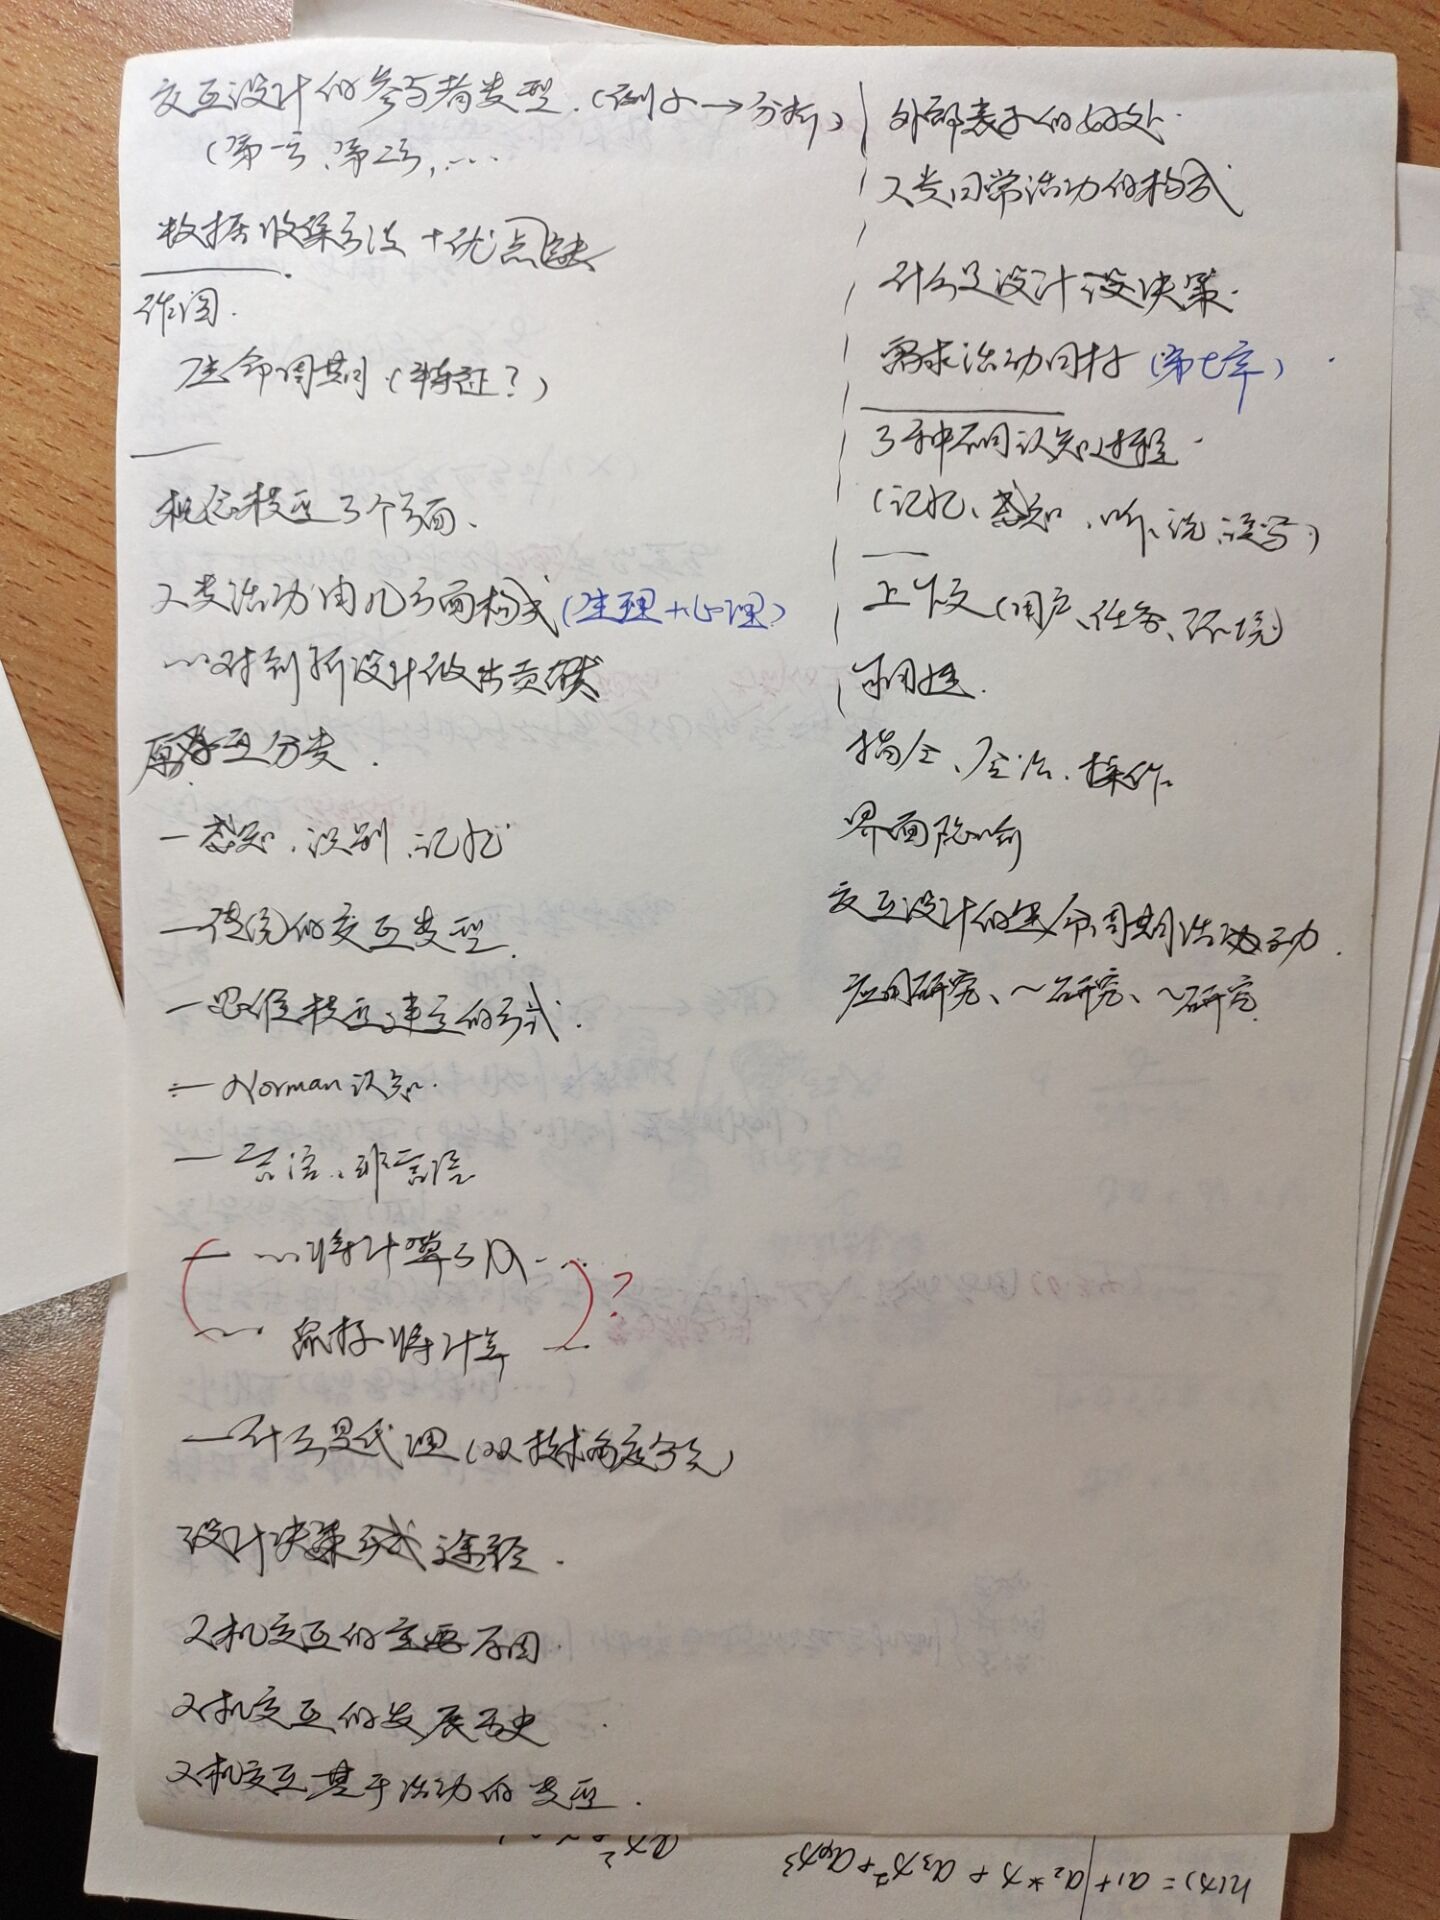 交互设计的参与者类型.（例子→分析）
（第一方、第二方,…
数据收集方法+优点缺
作图.
生命周期（特征？）
概念模型3个方面、
人类活动由几方面构成（生理+心理）
…对创新设计做出贡献
原型分类.
—感知、识别、记忆
—传统的交互类型.
—思维模型建立的方式.
—Norman认知.
—言语、非言语
—…将计算
…最好将计算—
—什么是代理（从技术角度
设计决策 途径.
人机交互的主要原因.
人机交互的发展历史
人机交互基于活动的类型.
外部表示的好处.
人类日常活动的构成
什么是设计 决策.
需求活动目标（第七章）
3种不同认知过程.
（记忆、感知、听、说、读写）
上下文（用户、任务、环境）
可用性.
指令、会话、操作
界面隐喻
交互设计的生命周期活动
应用研究、～研究、～研究.
h(x) = a₁ + a₂*x + a₃x² + a₄x³